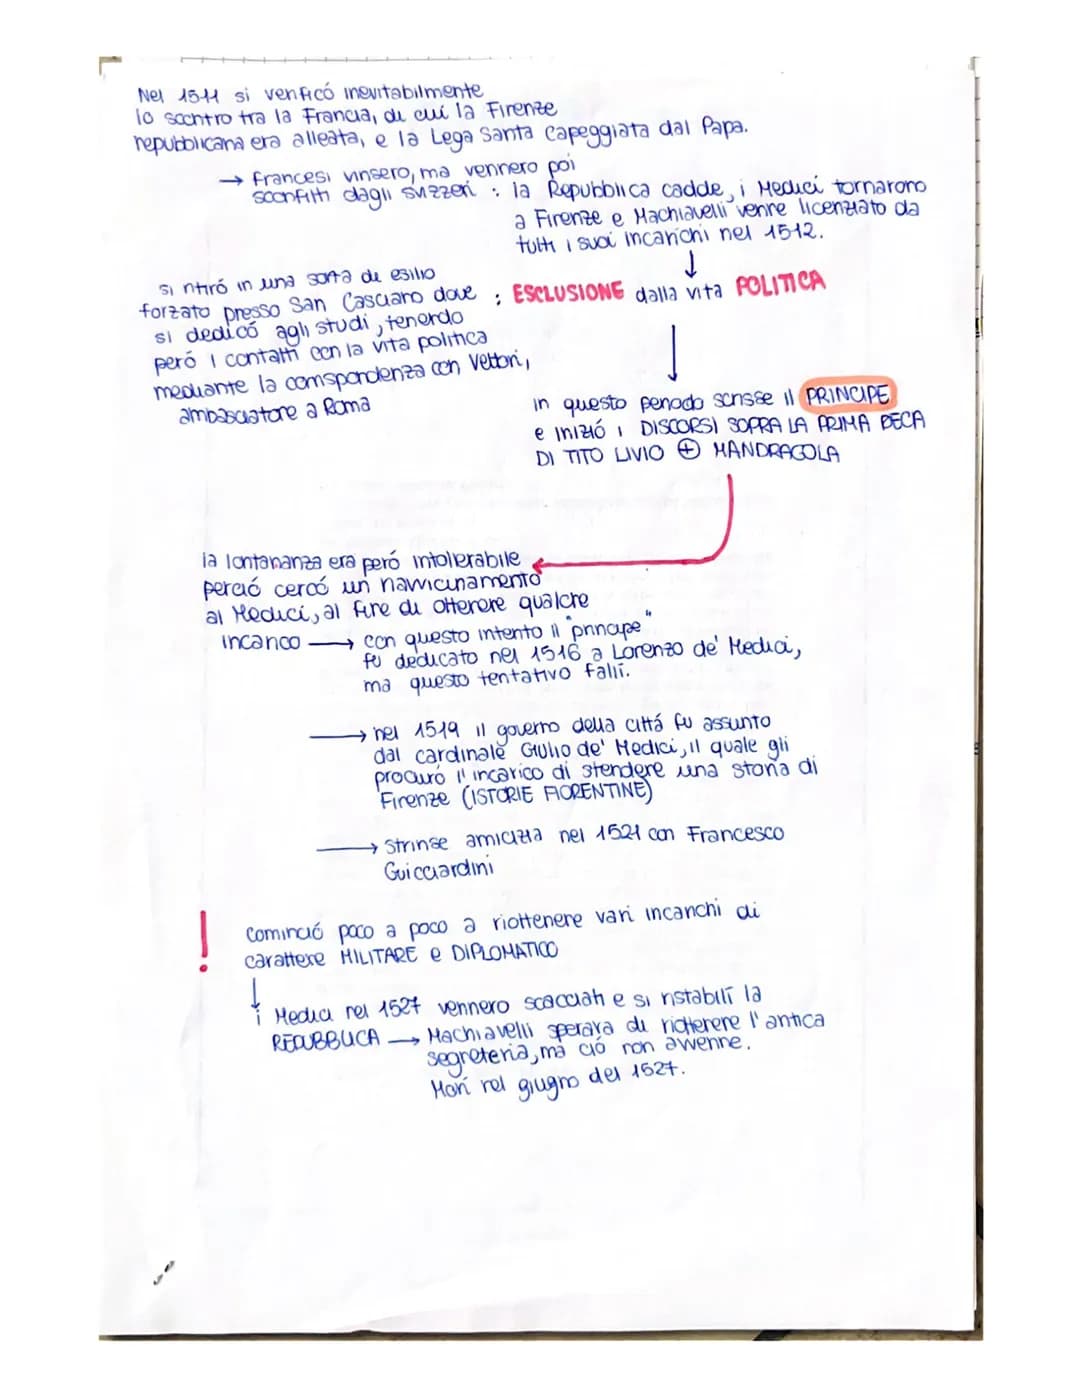 Nel 1511 si verificó inevitabilmente
lo scontro tra la Francia, di cui la Firenze
repubblicana era alleata, e la Lega Santa capeggiata dal Papa.
→ francesi vinsero, ma vennero poi
sconfitti dagli svizzeri : la Repubblica cadde, i Medici tornarono
a Firenze e Machiavelli venne licenziato da
tutti i suoi incarichi nel 1512.
↓
: ESCLUSIONE dalla vita POLITICA
si ritiró in una sorta di esilio
forzato presso San Casciano dove
si dedicó agli studi, tenendo
peró i contatti con la vita politica
mediante la corrispondenza con Vettori,
ambasciatore a Roma
↓
in questo periodo scrisse il PRINCIPE
e inizió i DISCORSI SOPRA LA PRIMA DECA
DI TITO LIVIO ⊕ MANDRAGOLA
la lontananza era peró intollerabile
perció cercó un riavvicinamento
ai Medici, al fine di ottenere qualche
incarico → con questo intento il "principe"
fu dedicato nel 1516 a Lorenzo de' Medici,
ma questo tentativo fallí.
→ nel 1519 il governo della cittá fu assunto
dal cardinale Giulio de' Medici, il quale gli
procuró l'incarico di stendere una storia di
Firenze (ISTORIE FIORENTINE)
→ Strinse amicizia nel 1521 con Francesco
Guicciardini
! Cominció poco a poco a riottenere vari incarichi di
carattere MILITARE e DIPLOMATICO
↓
i Medici nel 1527 vennero scacciati e si ristabilí la
REPUBBLICA → Machiavelli sperava di riottenere l'antica
segreteria, ma ció non avvenne.
Morí nel giugno del 1527.